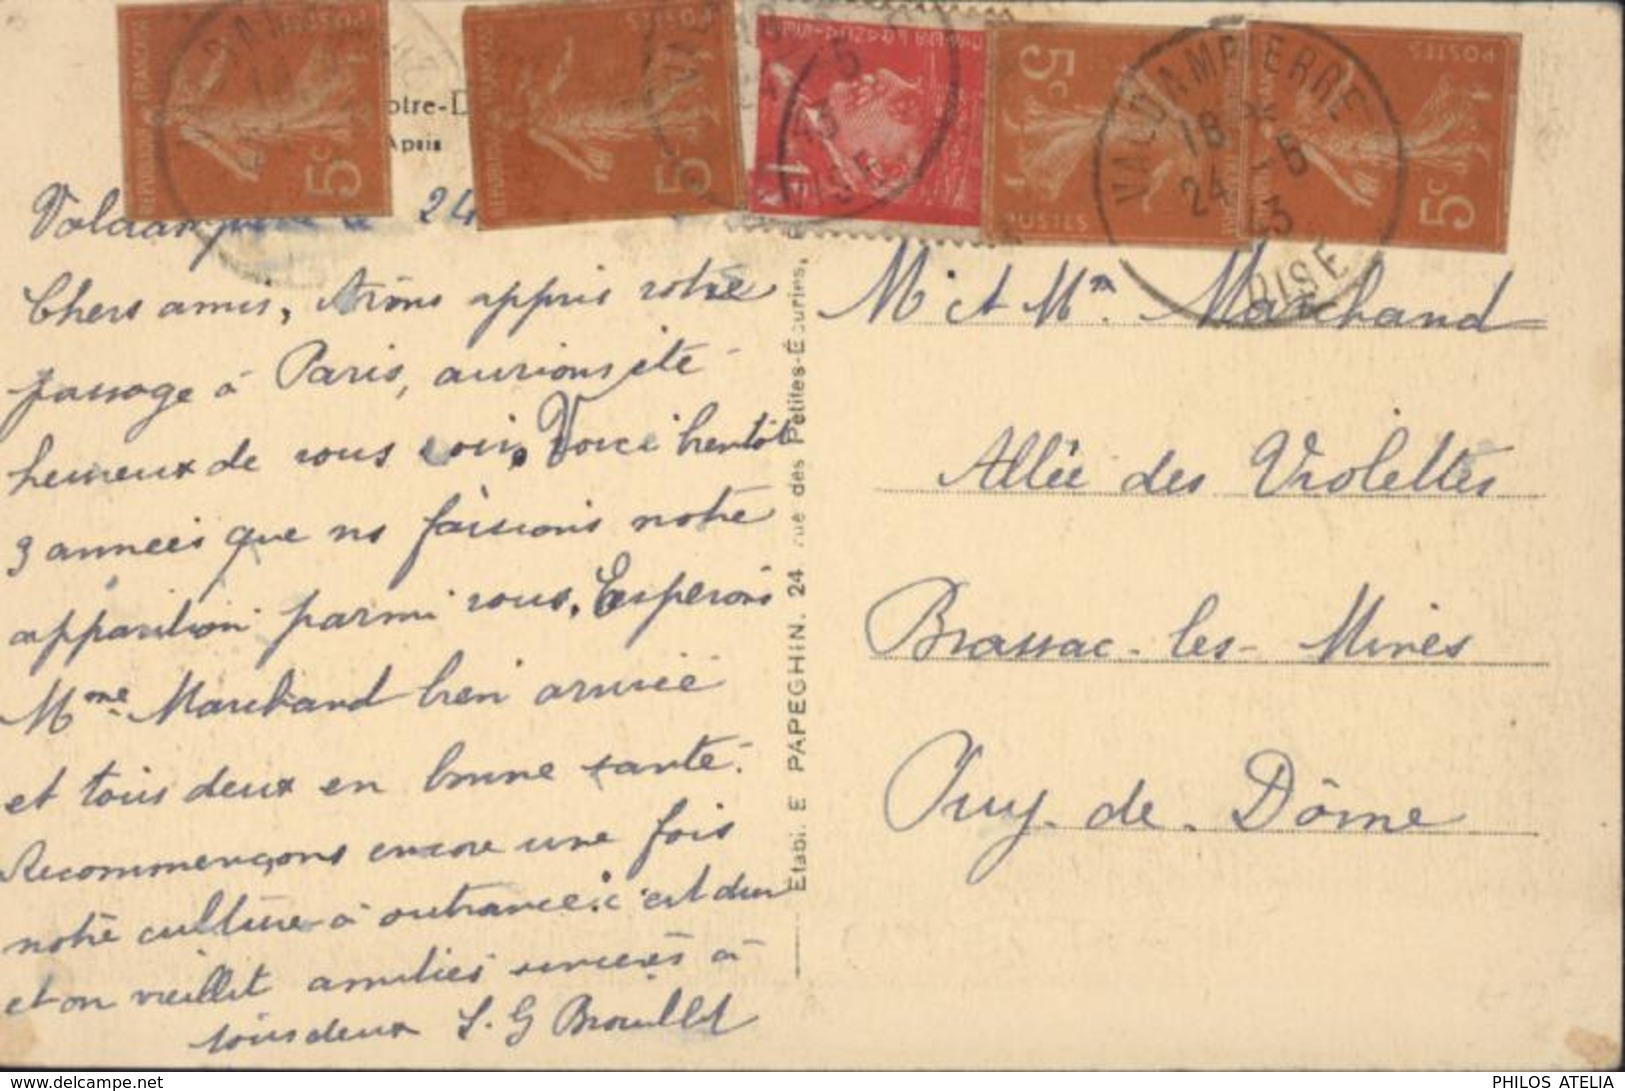 REPUBLIQUE FRANÇAISE
POSTES
5c
REPUBLIQUE FRANÇAISE
5c
1F
5c
POSTES
POSTES
5c
VALDAMPIERRE
18 *
24 - 5
43
OISE
otre-D
Valdampierre le 24
Chers amis, Avons appris votre
passage à Paris, aurions été
heureux de vous voir. Voici bientôt
3 années que ns faisions notre
apparition parmi vous. Espérons
Mme Marchand bien arrivée
et tous deux en bonne santé.
Recommençons encore une fois
notre culture à outrance. c'est dur
et on vieillit amitiés sincères à
tous deux S. G Brouillet
Etabl. E PAPEGHIN. 24 rue des Petites-Écuries,
Mr et Mme Marchand
Allée des Violettes
Brassac-les-Mines
Puy-de-Dôme
PHILOS ATELIA
www.delcampe.net